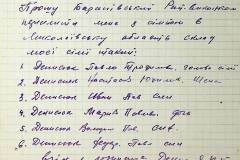 Прошу Баранівський Рай-виконком
переселити мене з сімєю в
Миколаївську область склад
моєї сімї такий:
1. Денисюк Павло Трофимов. голова сімї
2. Денисюк Настасія Жена
3. Денисюк Іван Пав син
4. Денисюк Марія Павлов. доч
5. Денисюк Володим Пав. син.
6. Денисюк Федор. Пав син